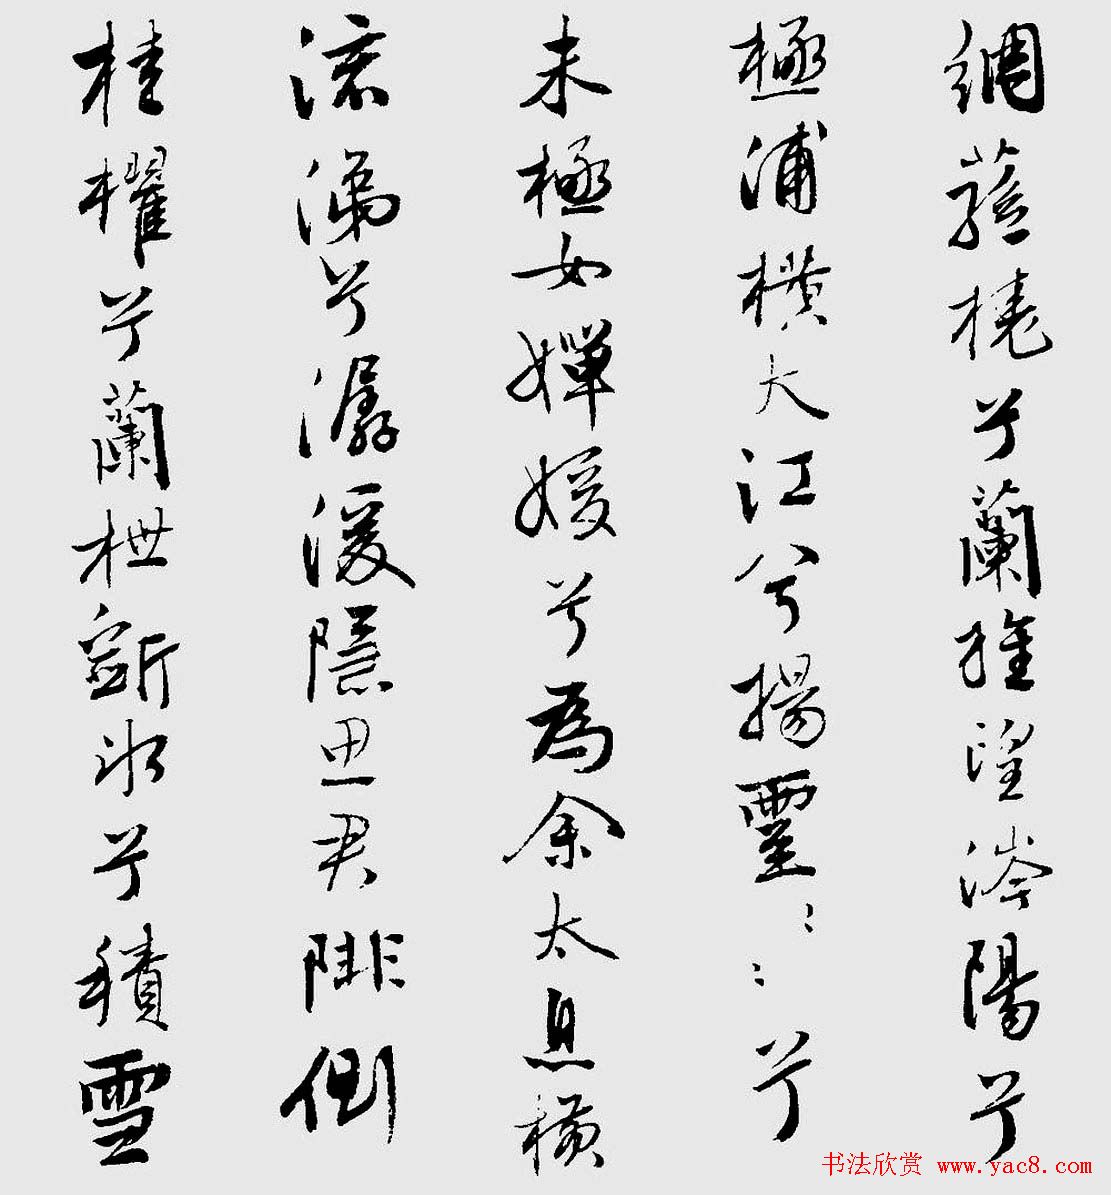 綢蓀橈兮蘭旌望涔陽兮
極浦橫大江兮揚靈〻〻兮
未極女嬋媛兮為余太息橫
流涕兮潺湲隱思君陫側
桂櫂兮蘭枻斲冰兮積雪
书法欣赏 www.yac8.com